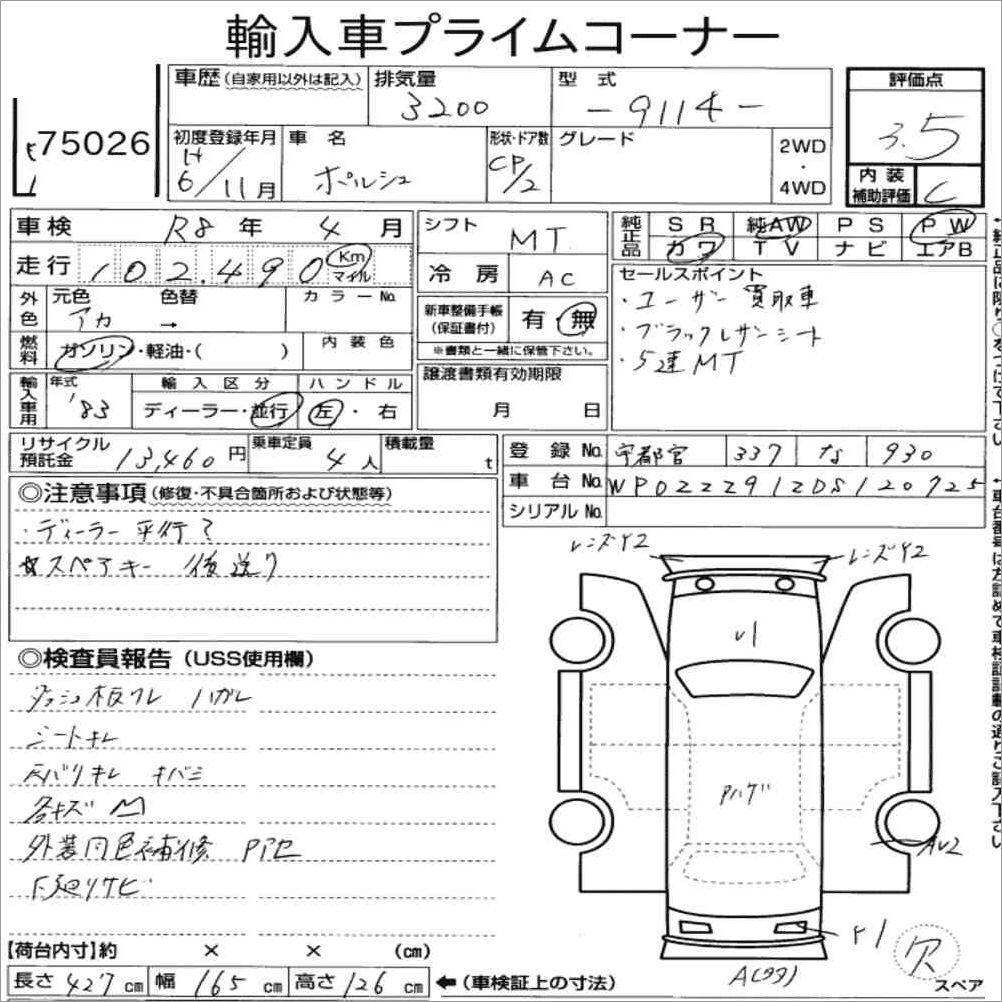 輸入車プライムコーナー
75026
車歴(自家用以外は記入) 排気量 3200 型式 -9114- 評価点 3.5
初度登録年月 H6/11月 車名 ポルシェ 形状・ドア数 CP/2 グレード 2WD・4WD 内装補助評価 C
車検 R8年 4月 シフト MT 純正品 SR 純AW PS PW
カワ TV ナビ エアB
走行 102,490 Km マイル 冷房 AC
外色 元色 アカ 色替 → カラーNo.
新車整備手帳(保証書付) 有・無
※書類と一緒に保管下さい。
セールスポイント
・ユーザー買取車
・ブラックレザーシート
・5速MT
燃料 ガソリン・軽油・( ) 内装色
輸入車用 年式 '83 輸入区分 ディーラー・並行 ハンドル 左・右
譲渡書類有効期限 月 日
リサイクル預託金 13,460円 乗車定員 4人 積載量 t
登録No. 宇都宮 337 な 930
車台No. WP0ZZZ91ZDS120925
シリアルNo.
◎注意事項(修復・不具合箇所および状態等)
・ディーラー平行?
☆スペアキー 後送り
◎検査員報告(USS使用欄)
ダッシュ板ワレ ハガレ
シートキレ
天バリキレ キバミ
各キズ M
外装同色補修 Pアセ
下廻リサビ
レンズY2
レンズY2
v1
Pハゲ
AU2
Y1
A(99)
欠
スペア
【荷台内寸】約 × × (cm)
長さ 427cm 幅 165cm 高さ 126cm ←(車検証上の寸法)